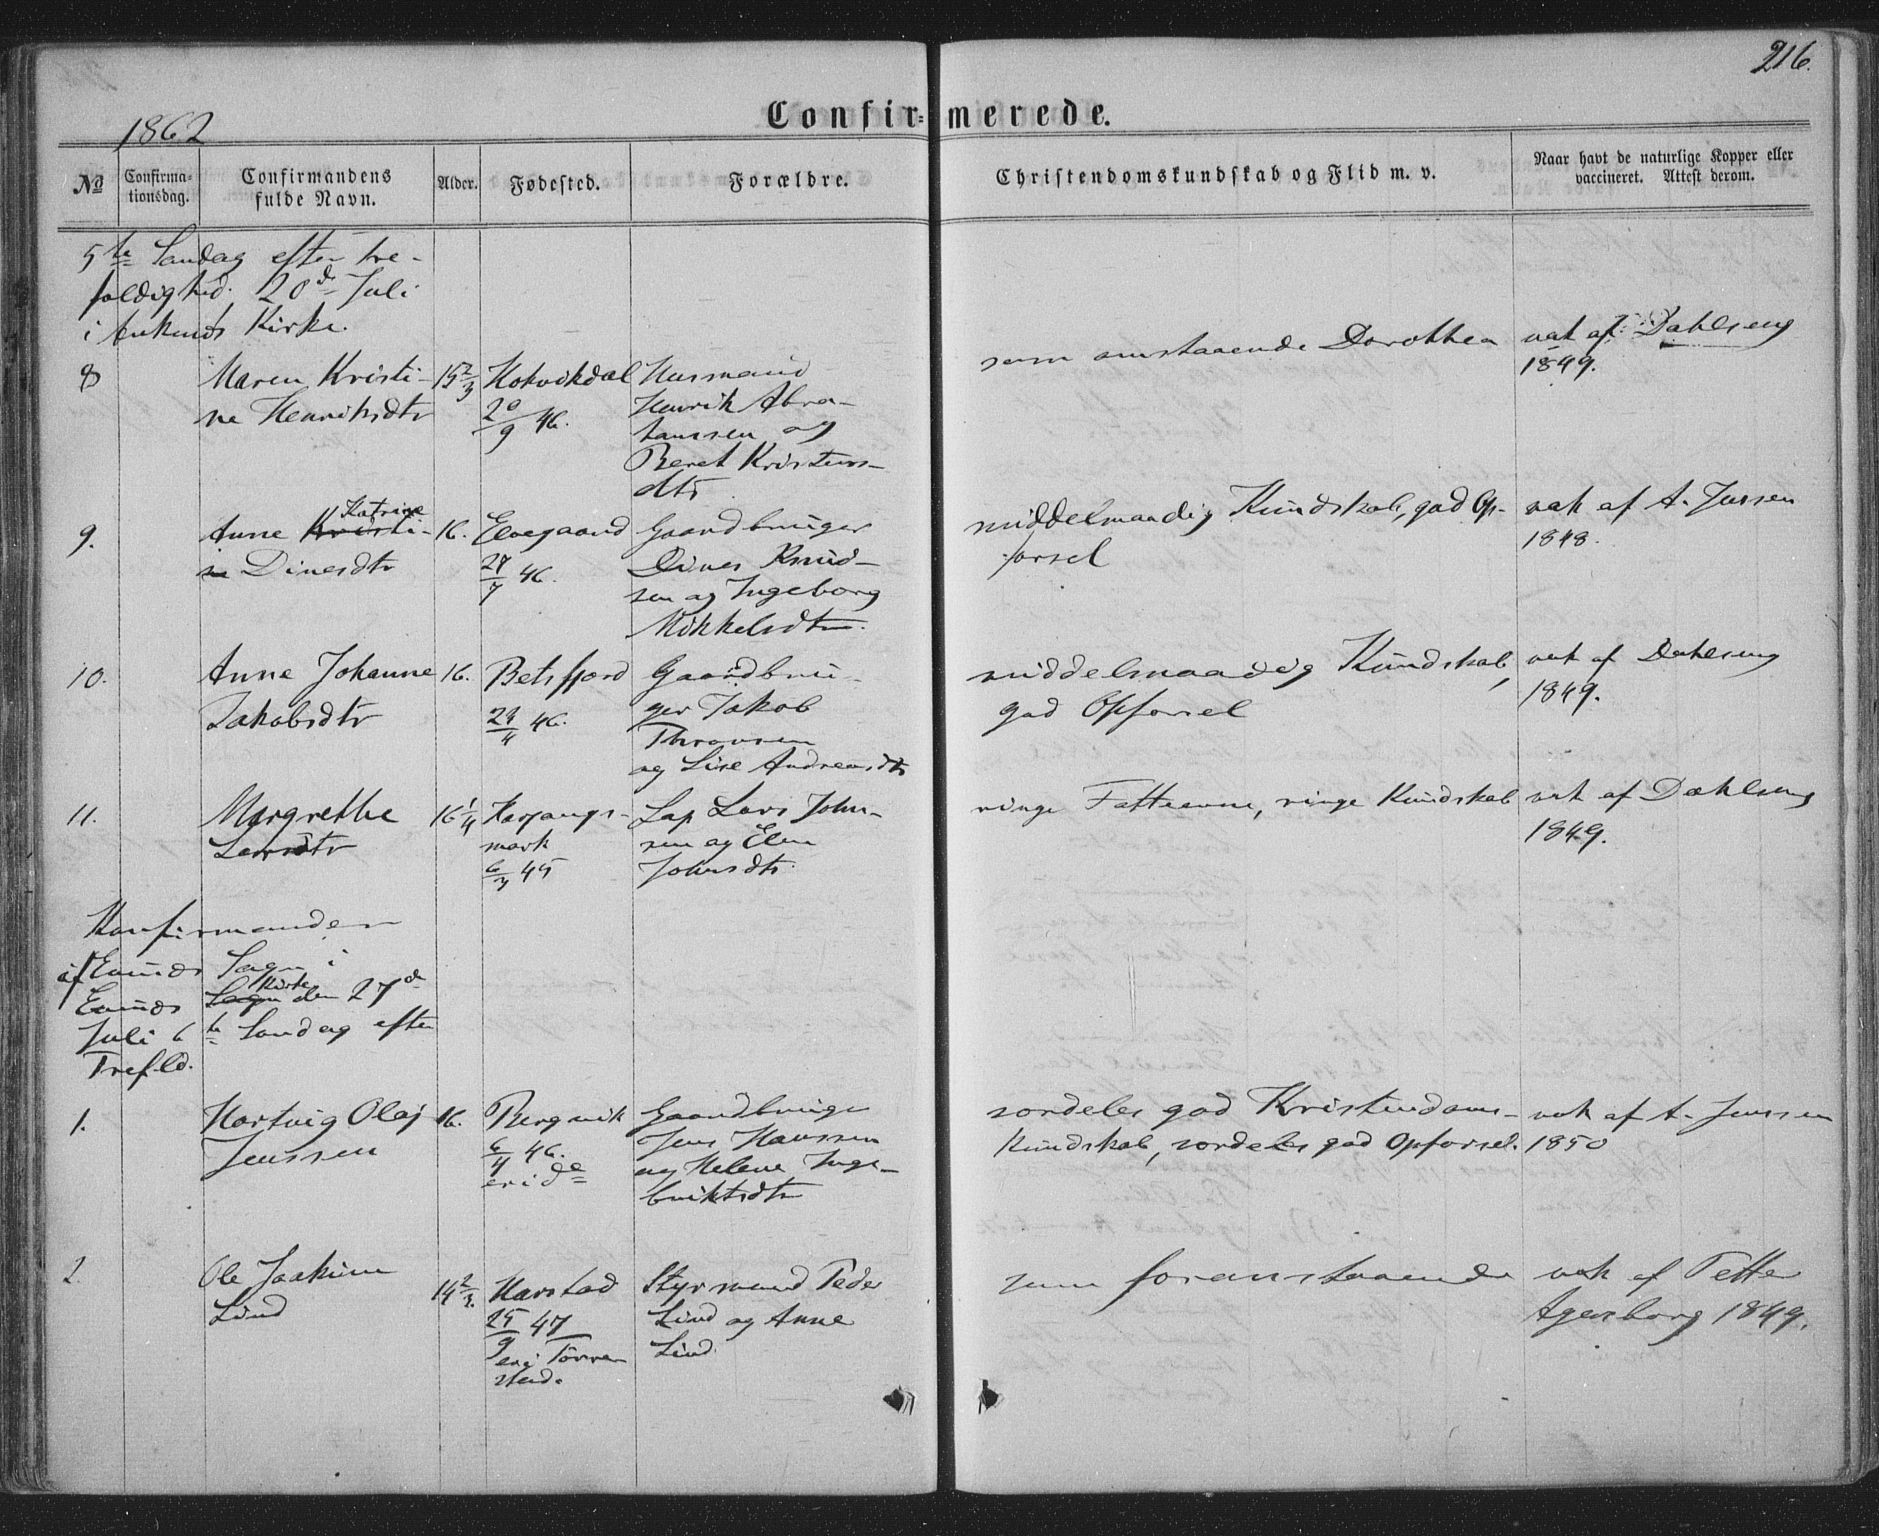 216.
1862
Confirmerede.
No
Confirmationsdag.
Confirmandens fulde Navn.
Alder.
Fødested.
Forældre.
Christendomskundskab og Flid m. v.
Naar havt de naturlige Kopper eller vaccineret. Attest derom.
5te Søndag efter Tre-
foldighed. 20de Juli
i Ankenæs Kirke.
8
Maren Kristi-
ne Henriksdtr
15 2/3
Hokvikdal
20/9 46.
Husmand
Henrik Abra-
hamsen og
Beret Kristens-
dtr
som omstaaende Dorothea
vak af J. Dahlseng
1849.
9.
Anne Kristi-
Katrine
ne Dinesdtr
16.
Elvegaard
27/7 46.
Gaardbruger
Dines Knud-
sen og Ingeborg
Mikkelsdtr.
middelmaadig Kundskab, god Op-
førsel
vak af A. Jenssen
1848.
10.
Anne Johanne
Jakobsdtr
16.
Beisfjord
29/4 46.
Gaardbru-
ger Jakob
Thronsen
og Lise Andreasdtr
middelmaadig Kundskab,
god Opførsel
vak af Dahlseng
1849.
11.
Margrethe
Larsdtr
16 1/4
Herjangs-
mark
6/3 45
Lap Lars John-
sen og Elen
Johnsdtr.
ringe Fatteevne, ringe Kundskab
vak af Dahlseng
1849.
Konfirmander
af Evenæs Sogn i
Evenæs Sogn Kirke den 27de
Juli 6te Søndag efter
Trefld.
1.
Hartvig Olaj
Jenssen
16.
Bergvik
6/4 46.
eride
Gaardbruger
Jens Hanssen
og Helene Inge-
briktsdtr
særdeles god Kristendoms-
kundskab, særdeles god Opførsel.
vak af A. Jenssen
1850
2.
Ole Joakim
Lind
14 2/3.
Harstad
25/9 47
eri Tovve-
sted.
Styrmand Peder
Lind og Anne
Lind.
som foranstaaende
vak af Pette
Agersborg 1849.